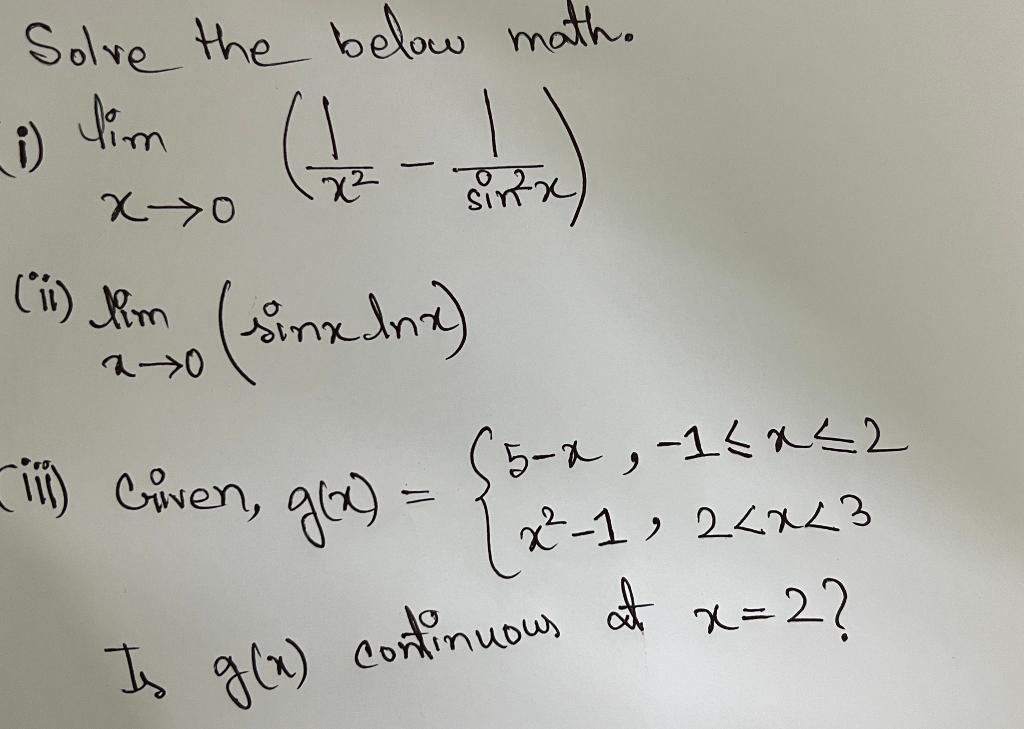 Solve the below math.
(i) lim x→0 (1/x² - 1/sin²x)
(ii) lim x→0 (sinx lnx)
(iii) Given, g(x) = { 5-x , -1 ≤ x ≤ 2
x²-1 , 2<x<3
Is g(x) continuous at x=2?